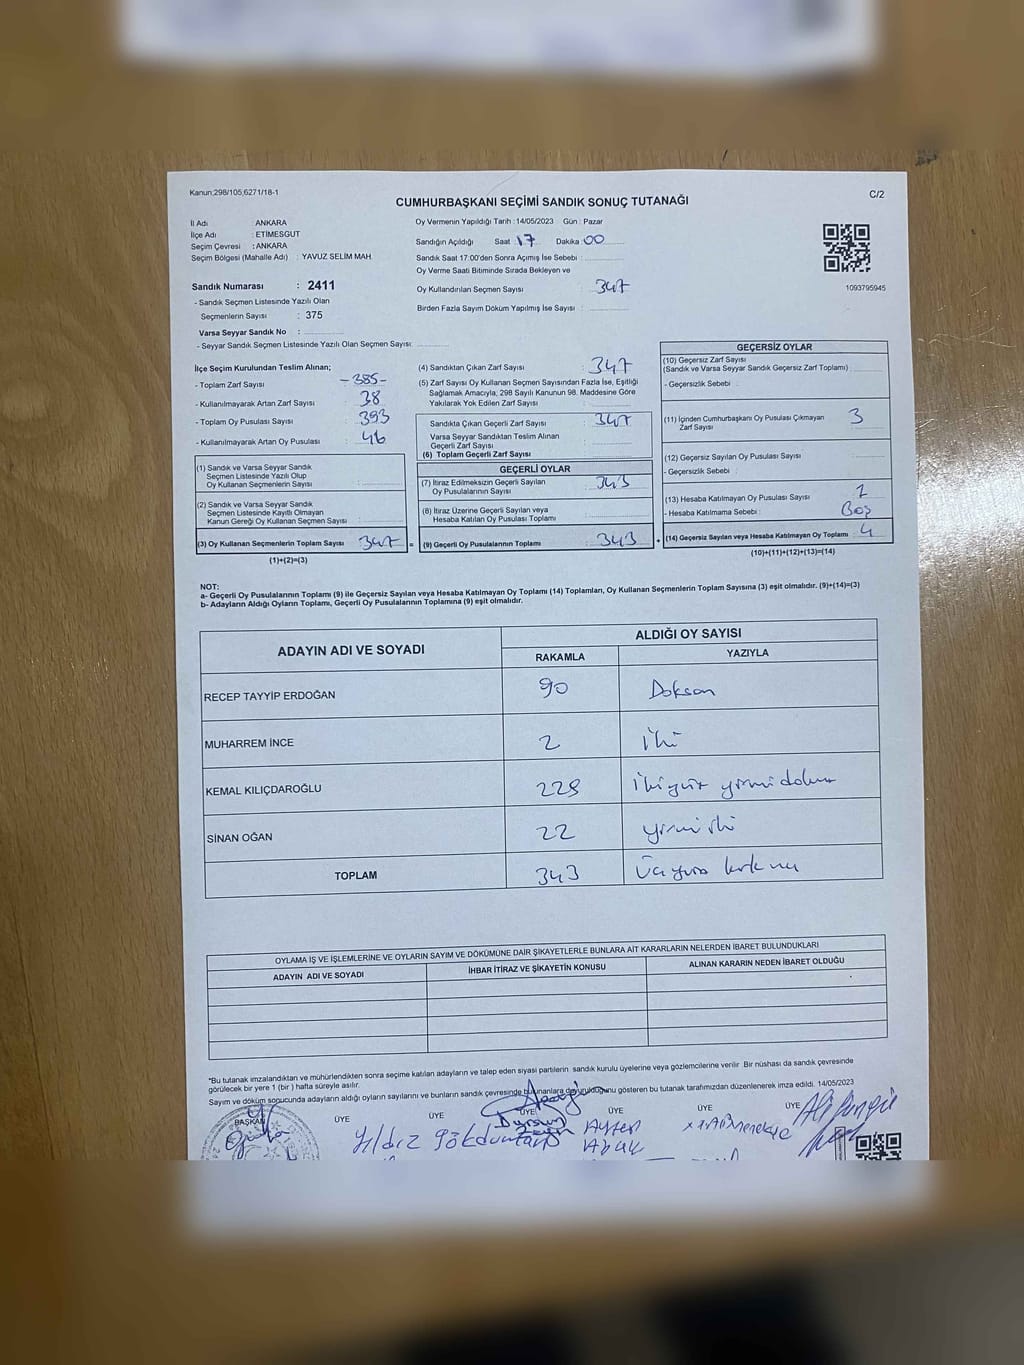 Kanun;298/105,6271/18-1
C/2
CUMHURBAŞKANI SEÇİMİ SANDIK SONUÇ TUTANAĞI
İl Adı : ANKARA
İlçe Adı : ETİMESGUT
Seçim Çevresi : ANKARA
Seçim Bölgesi (Mahalle Adı) : YAVUZ SELİM MAH.
Sandık Numarası : 2411
- Sandık Seçmen Listesinde Yazılı Olan
Seçmenlerin Sayısı : 375
Varsa Seyyar Sandık No :
- Seyyar Sandık Seçmen Listesinde Yazılı Olan Seçmen Sayısı:
Oy Vermenin Yapıldığı Tarih : 14/05/2023 Gün : Pazar
Sandığın Açıldığı Saat 17 Dakika 00
Sandık Saat 17.00'den Sonra Açımış İse Sebebi :
Oy Verme Saati Bitiminde Sırada Bekleyen ve
Oy Kullandırılan Seçmen Sayısı : 347
Birden Fazla Sayım Döküm Yapılmış İse Sayısı :
1093795945
İlçe Seçim Kurulundan Teslim Alınan;
- Toplam Zarf Sayısı : -385-
- Kullanılmayarak Artan Zarf Sayısı : 38
- Toplam Oy Pusulası Sayısı : 393
- Kullanılmayarak Artan Oy Pusulası : 46
(1) Sandık ve Varsa Seyyar Sandık
Seçmen Listesinde Yazılı Olup
Oy Kullanan Seçmenlerin Sayısı :
(2) Sandık ve Varsa Seyyar Sandık
Seçmen Listesinde Kayıtlı Olmayan
Kanun Gereği Oy Kullanan Seçmen Sayısı :
(3) Oy Kullanan Seçmenlerin Toplam Sayısı : 347
(1)+(2)=(3)
(4) Sandıktan Çıkan Zarf Sayısı : 347
(5) Zarf Sayısı Oy Kullanan Seçmen Sayısından Fazla İse, Eşitliği
Sağlamak Amacıyla; 298 Sayılı Kanunun 98. Maddesine Göre
Yakılarak Yok Edilen Zarf Sayısı :
Sandıkta Çıkan Geçerli Zarf Sayısı : 347
Varsa Seyyar Sandıktan Teslim Alınan
Geçerli Zarf Sayısı :
(6) Toplam Geçerli Zarf Sayısı :
GEÇERLİ OYLAR
(7) İtiraz Edilmeksizin Geçerli Sayılan
Oy Pusulalarının Sayısı : 343
(8) İtiraz Üzerine Geçerli Sayılan veya
Hesaba Katılan Oy Pusulası Toplamı :
= (9) Geçerli Oy Pusulalarının Toplamı : 343
GEÇERSİZ OYLAR
(10) Geçersiz Zarf Sayısı
(Sandık ve Varsa Seyyar Sandık Geçersiz Zarf Toplamı) :
- Geçersizlik Sebebi :
(11) İçinden Cumhurbaşkanı Oy Pusulası Çıkmayan
Zarf Sayısı : 3
(12) Geçersiz Sayılan Oy Pusulası Sayısı :
- Geçersizlik Sebebi :
(13) Hesaba Katılmayan Oy Pusulası Sayısı : 1
- Hesaba Katılmama Sebebi : Boş
+ (14) Geçersiz Sayılan veya Hesaba Katılmayan Oy Toplamı : 4
(10)+(11)+(12)+(13)=(14)
NOT:
a- Geçerli Oy Pusulalarının Toplamı (9) ile Geçersiz Sayılan veya Hesaba Katılmayan Oy Toplamı (14) Toplamları, Oy Kullanan Seçmenlerin Toplam Sayısına (3) eşit olmalıdır. (9)+(14)=(3)
b- Adayların Aldığı Oyların Toplamı, Geçerli Oy Pusulalarının Toplamına (9) eşit olmalıdır.
ADAYIN ADI VE SOYADI ALDIĞI OY SAYISI
RAKAMLA YAZIYLA
RECEP TAYYİP ERDOĞAN 90 Doksan
MUHARREM İNCE 2 iki
KEMAL KILIÇDAROĞLU 229 ikiyüz yirmi dokuz
SİNAN OĞAN 22 yirmi iki
TOPLAM 343 Üçyüz kırk üç
OYLAMA İŞ VE İŞLEMLERİNE VE OYLARIN SAYIM VE DÖKÜMÜNE DAİR ŞİKAYETLERLE BUNLARA AİT KARARLARIN NELERDEN İBARET BULUNDUKLARI
ADAYIN ADI VE SOYADI İHBAR İTİRAZ VE ŞİKAYETİN KONUSU ALINAN KARARIN NEDEN İBARET OLDUĞU
*Bu tutanak imzalandıktan ve mühürlendikten sonra seçime katılan adayların ve talep eden siyasi partilerin sandık kurulu üyelerine veya gözlemcilerine verilir. Bir nüshası da sandık çevresinde
görülecek bir yere 1 (bir) hafta süreyle asılır.
Sayım ve döküm sonucunda adayların aldığı oyların sayılarını ve bunların sandık çevresinde bulunanlara duyurulduğunu gösteren bu tutanak tarafımızdan düzenlenerek imza edildi. 14/05/2023
BAŞKAN ÜYE ÜYE ÜYE ÜYE ÜYE ÜYE
Yıldız Dursun Ayten Ali